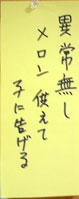 異常無し
メロン供えて
子に告げる